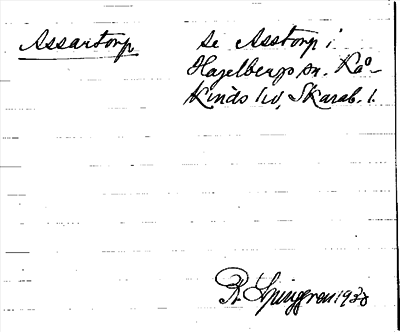 Assartorp
se Asstorp i
Hagelbergs sn. Kå-
kinds hd, Skarab. l.
R. Ljunggren 1938